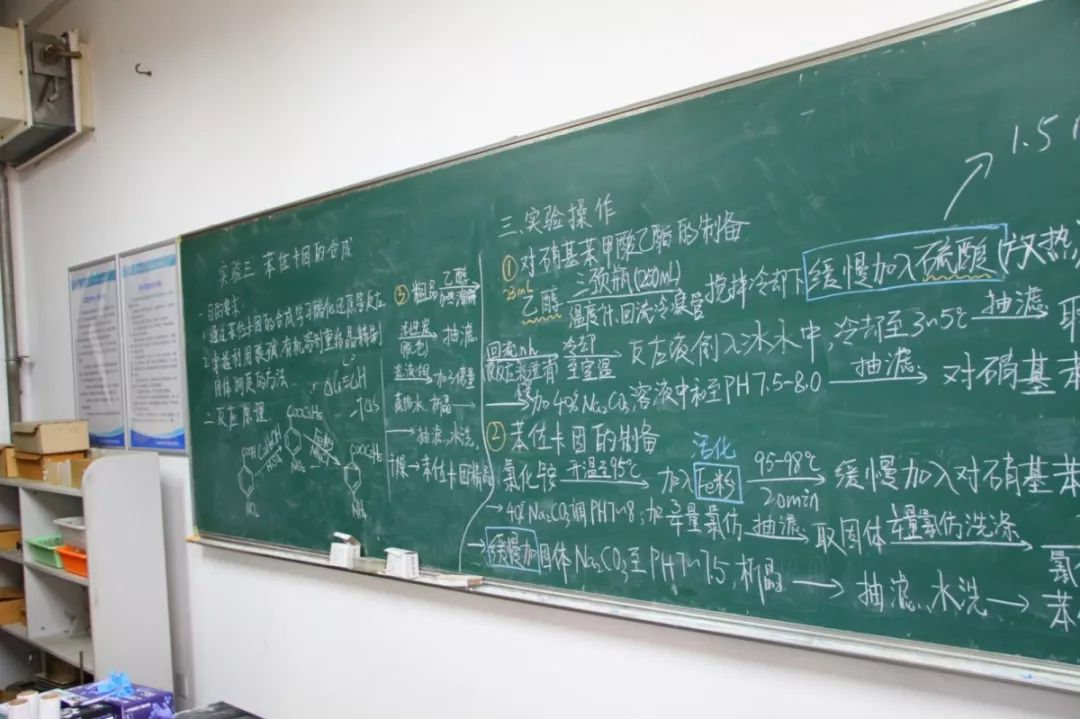 实验三 苯佐卡因的合成
一、目的要求
1. 通过苯佐卡因的合成学习酯化还原等反应
2. 掌握利用酸碱、有机溶剂重结晶精制
固体物质的方法
二、反应原理
COOH
NO₂
C₂H₅OH
H₂SO₄
COOC₂H₅
NO₂
COOC₂H₅
NH₂
③ 粗品 乙醇
活性炭
脱色 抽滤
蒸馏水 析晶
→ 抽滤、水洗
干燥 → 苯佐卡因精品
三、实验操作
① 对硝基苯甲酸乙酯的制备
1.5
乙醇 三颈瓶(250mL) 温度计、回流冷凝管 搅拌冷却下 缓慢加入硫酸(放热)
回流 冷却 至室温 反应液倒入冰水中,冷却至3~5℃ 抽滤 取
加40% Na₂CO₃溶液中和至PH7.5-8.0 抽滤 对硝基苯
② 苯佐卡因的制备
活化
氯化铵 升温至95℃ 加入 Fe粉 95-98℃ 20min 缓慢加入对硝基苯
→ 40% Na₂CO₃调PH7~8,加 氯仿 抽滤 取固体 氯仿洗涤
→ 缓慢加固体Na₂CO₃至PH7~7.5 析晶 → 抽滤、水洗 → 苯